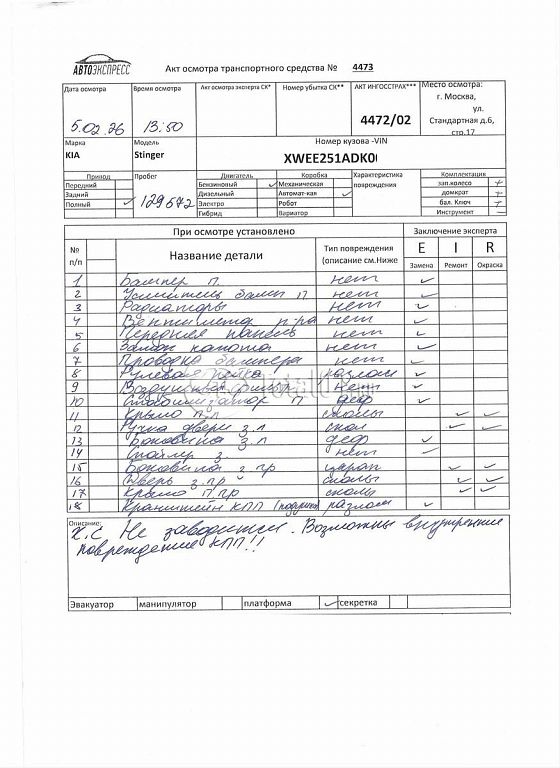 АВТОЭКСПРЕСС
Акт осмотра транспортного средства № 4473
Дата осмотра Время осмотра Акт осмотра эксперта СК* Номер убытка СК** АКТ ИНГОССТРАХ*** Место осмотра:
г. Москва,
ул.
Стандартная д.6,
стр.17
5.02.26 13:50 4472/02
Марка Модель Номер кузова -VIN
KIA Stinger XWEE251ADK0
Привод Пробег Двигатель Коробка Характеристика повреждения Комплектация
Передний Бензиновый Механическая зап.колесо +
Задний Дизельный Автомат-кая домкрат +
Полный 129672 Электро Робот бал. Ключ +
Гибрид Вариатор Инструмент -
При осмотре установлено Заключение эксперта
№ п/п Название детали Тип повреждения (описание см.Ниже E I R
Замена Ремонт Окраска
1 Бампер п. нет
2 Усилитель бамп п нет
3 Радиаторы нет
4 Вентилятор п-ра нет
5 Передняя панель нет
6 Замок капота нет
7 Проводка бампера нет
8 Рулевая рейка разлом
9 Воздушный фильтр нет
10 Стабилизатор п деф
11 Крыло п.л сколы
12 Ручка двери з.л скол
13 Боковина з.л деф
14 Спойлер з. нет
15 Боковина з пр царап
16 Дверь з.пр сколы
17 Крыло п.пр сколы
18 Кронштейн КПП разлом
Описание:
Х.С Не заводится. Возможны внутренние
повреждение КПП!!
Эвакуатор манипулятор платформа секретка